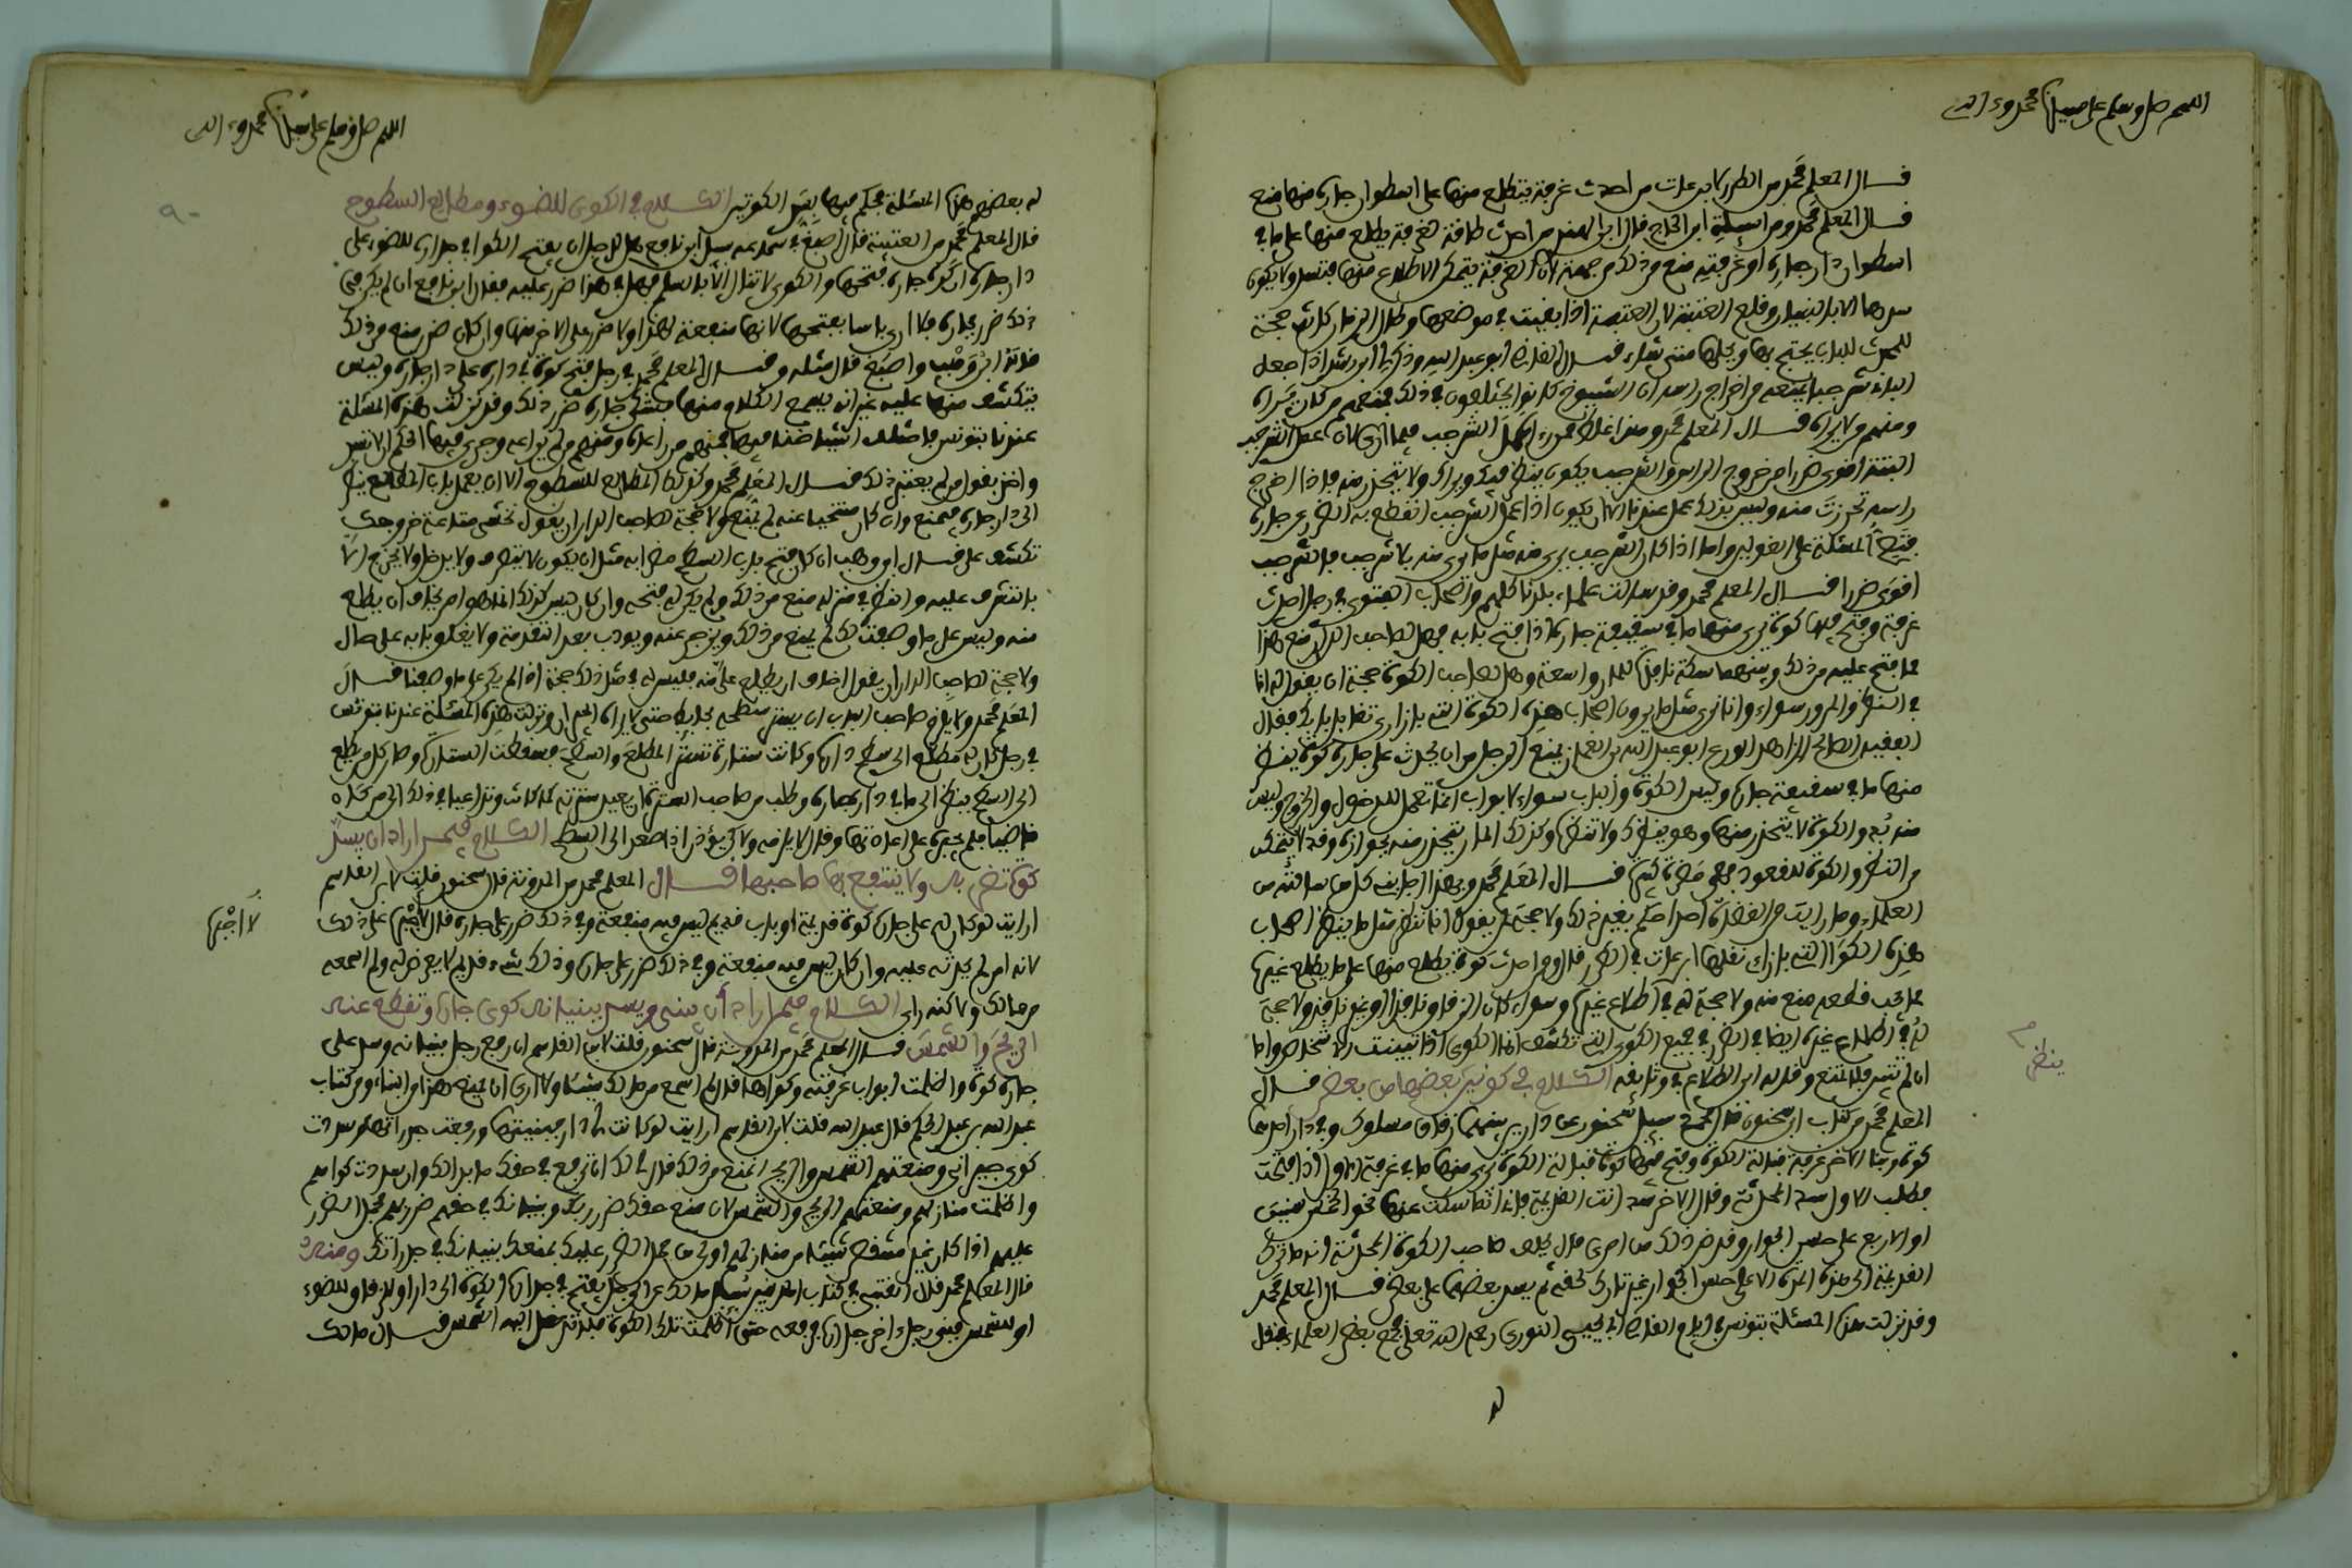 اللهم صل وسلم على سيدنا محمد وءاله
قال المعلم محمد من الطرر لابن عات من احدث غرفة يتطلع منها على اسطوان جاره منها منع
قال المعلم محمد ومن اسئلة ابن الحاج قال ابن الهندي من احدث طاقة لغرفة يطلع منها على ما في
اسطوان دار جاره او غرفته منع من ذلك من جهة ان الغرفة يتمكن الاطلاع منها فتسد ولا يكون
سدها الا بالبنيان وقلع العتبة لان العتبة اذا بقيت في موضعها وطال الزمان كانت حجة
للمحدث لذلك يحتج بها ويحلها متى شاء قال القاضي ابو عبد الله وذكر لي ابن رشد اذا جعل
البناء شرجبا يمنعه من اخراج راسه ان الشيوخ كانوا يختلفون في ذلك فمنهم من كان يراه
ومنهم من لا يراه قال المعلم محمد ومنزلنا غلط ضررا اهل الشرجب فيما ارى لان عمل الشرجب
البتة اقوى ضررا من خروج الراس والشرجب يكون ينظر فيك ويراك ولا يتحرز منه فاذا اخرج
راسه تحرزت منه وليس بذلك عمل عندنا الا ان يكون اذا عمل الشرجب انقطع به النظر عن جاره
فتصح المسئلة على القولين واما اذا كان الشرجب يرى منه مثل ما يرى منه بلا شرجب فالشرجب
اقوى ضررا قال المعلم محمد وقد سالت علماء بلدنا كلهم واصحاب الفتوى في رجل احدث
غرفة وفتح فيها كوة يرى منها ما في سقيفة جاره اذا فتح بابه فهل لصاحب الدار منع هذا
مما فتح عليه من ذلك وبينهما سكة نافذة للمارة واسعة وهل لصاحب الكوة حجة ان يقول له انا
في النظر والمرور سواء وانا نرى مثل ما يرون اصحاب هذه الكوة التي بازاءى تقابل بابك فقال
الفقيه الصالح الزاهد الورع ابو عبد الله بن الغماز يمنع الرجل من ان يحدث على جاره كوة ينظر
منها ما في سقيفة جاره وليس الكوة والباب سواء لابواب انما تعمل للدخول والخروج وليس
منه بد والكوة لا يتحرز منها وهو ينظرك ولا تنظره وكذلك المار يتحرز منه بجوازه وقد لا يتمكن
من النظر والكوة للقعود فهي مضرة كبيرة قال المعلم محمد وبهذا اجابني كل من سالته من
العلماء وما رايت من القضاة احدا حكم بغير ذلك ولا حجة له يقول انا ننظر مثل ما ينظر اصحاب
هذه الكوا التي بازاءى نقلها ابن عات في الطرر قال ومن احدث كوة يطلع منها على ما يطلع غيره
مما يجب قطعه منع منه ولا حجة له في اطلاع غيره وسواء كان الزقاق نافذا او غير نافذ ولا حجة
له في اطلاع غيره ايضا في الضرر في جميع الكوى التي تكشف اما الكوى اذا تبينت الاشخاص واما
ان لم تتبين فلا تمنع وقاله ابن الطلاع في وثائقه الكلام في كوتين بعضها من بعض قال
المعلم محمد من كتاب ابن سحنون قال محمد سئل سحنون عن دارين بينهما زقاق مسلوك وفي دار احدهما
كوة وبنا الاخر غرفة قبالة الكوة وفتح فيها كوة قبالة الكوة يرى منها ما في غرفة الاول اذا فتحت
فطلب الاول سد المحدثة وقال الاخر سد انت القديمة فاني انما سكت عنها نحو الخمس سنين
او الاربع على حسن الجوار وقد ضر ذلك من امرى قال يحلف صاحب الكوة المحدثة انه ما ترك
القديمة الى هذه المدة الا على حسن الجوار غير تارك لحقه ثم يسد بعضها على بعض قال المعلم محمد
وقد نزلت هذه المسئلة بتونس في ايام القاضي ابي يحيى الغوري رحمه الله تعلى فجمع بعض العلماء فقال
له
ينظر
اللهم صل وسلم على سيدنا محمد وءاله
٩٠
له بعضهم هذه المسئلة يحكم فيها بسد الكوتين الكلام في الكوى للضوء ومطالع السطوح
قال المعلم محمد من العتبية قال اصبغ في سماعه سئل ابن نافع هل للرجل ان يفتح الكوا في جداره للضوء على
دار جاره ان كره جاره فتحها والكوى لا تنال الا بالسلم فهل في هذا ضرر عليه فقال ابن نافع ان لم يكن في
ذلك ضرر بجاره فلا ارى باسا بفتحها لانها منفعة لهذا ولا ضرر على الاخر منها وان كان ضرر منع من ذلك
قال ابن وهب واصبغ قال مثله وقال المعلم محمد في رجل فتح كوة في داره على دار جاره وليس
يتكشف منها عليه غير انه يسمع الكلام منها فشكى جاره ضرر ذلك وقد نزلت هذه المسئلة
عندنا بتونس فاختلف اشياخنا فيها فمنهم من راعاه ومنهم من لم يراعه وجرى فيها الحكم الا تسد
واخذ بقول من لم يعتبر ذلك قال المعلم محمد وكذلك المطالع للسطوح الا ان يعمل باب المطلع ينظر
الى دار جاره فيمنع وان كان منتحيا عنه لم يمنع ولا حجة لصاحب الدار ان يقول نخشى متى عند خروجك
تكشف على قال ابن وهب ان كان فتح باب السطح مضرا به مثل ان يكون لا ينظر ولا يدخل ولا يخرج الا
بالتشرف عليه والنظر في منزله منع من ذلك ولم يكن له فتحه وان كان ليس كذلك انما هو امر يخاف ان يطلع
منه وليس على ما وصفت لك لم يمنع من ذلك ويزجر عنه ويودب بعد التقدمة ولا يغلق بابه على حال
ولا حجة لصاحب الدار ان يقول اخاف ان يطلع علي منه فليس له في مثل ذلك حجة اذا لم يكن على ما وصفنا قال
المعلم محمد ولا يلزم صاحب الباب ان يستر سطحه بحائط حتى لا يراه الجيران ونزلت هذه المسئلة عندنا بتونس
في رجل كان له مطلع الى سطح داره وكانت ستارة تستر المطلع والسطح فسقطت الستارة وصار كل من يطلع
الى السطح ينظر الى ما في دار جاره وطلب من صاحب الستر ان يعيد سترته كما كانت وتداعيا في ذلك الى من كان
قاضيا فلم يجبره على اعادتها وقال لا يلزمه ولاكن يؤذن اذا صعد الى السطح الكلام فيمن اراد ان يسد
كوة تضر به ولا ينتفع بها صاحبها قال المعلم محمد من المدونة قال سحنون قلت لابن القاسم
ارايت لو كان له على جاره كوة قديمة او باب قديم ليس فيه منفعة وفي ذلك ضرر على جاره قال لا يجبر على ذلك
لا اجبره
لانه امر لم يحدثه عليه وان كان ليس فيه منفعة وفي ذلك ضرر على جاره وذلك شيء قديم لا يعرض له ولم اسمعه
من مالك ولاكنه راي الكلام فيمن اراد ان يبني ويسد ببنيانه كوى جاره وتقطع عنه
الريح والشمس قال المعلم محمد من المدونة قال سحنون قلت لابن القاسم ان رفع رجل بنيانه وسد على
جاره كوة واظلمت ابواب غرفته وكواها قال لم اسمع من مالك شيئا ولا ارى ان يمنع هذا من البناء ومن كتاب
عبد الله بن عبد الحكم قال عبد الله قلت لابن القاسم ارايت لو كانت لي دار فبنيتها ورفعت جدراتها وسددت
كوى جيراني ومنعتهم الشمس والريح ايمنع من ذلك قال لك ان ترفع في حقك ما بدا لك وان سددت كواهم
واظلمت منازلهم ومنعتهم الريح والشمس لان منع حقك ضرر بك وبنيانك في حقهم ضرر بهم فحمل الضرر
عليهم اذا كان غير منتقص شيئا من منازلهم اولى من حمل الضرر عليك بمنعك بنيانك في جدراتك ومنه
قال المعلم محمد قال العتبي في كتاب المدنيين سئل مالك عن الرجل يفتح في جداره الكوة الى دار او الى زقاق للضوء
او للشمس فيبني رجل اخر جداره فرفعه حتى اظلمت تلك الكوة فلا تدخل اليه الشمس قال مالك